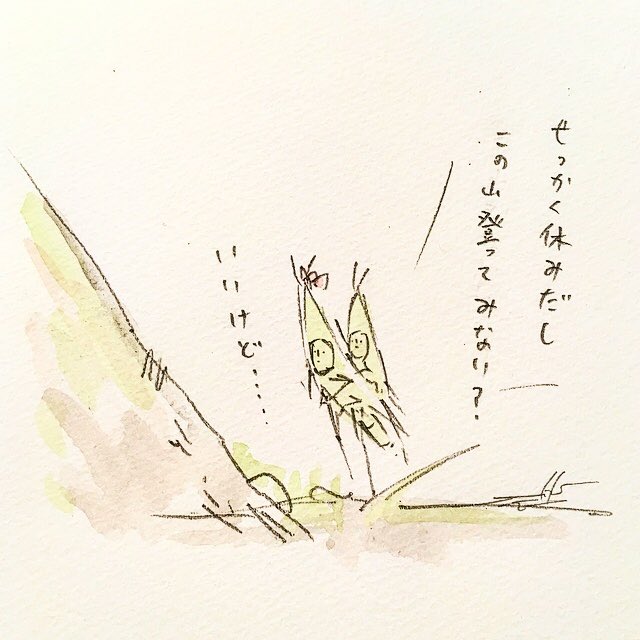 せっかく休みだし
この山登ってみない?
いいけど....